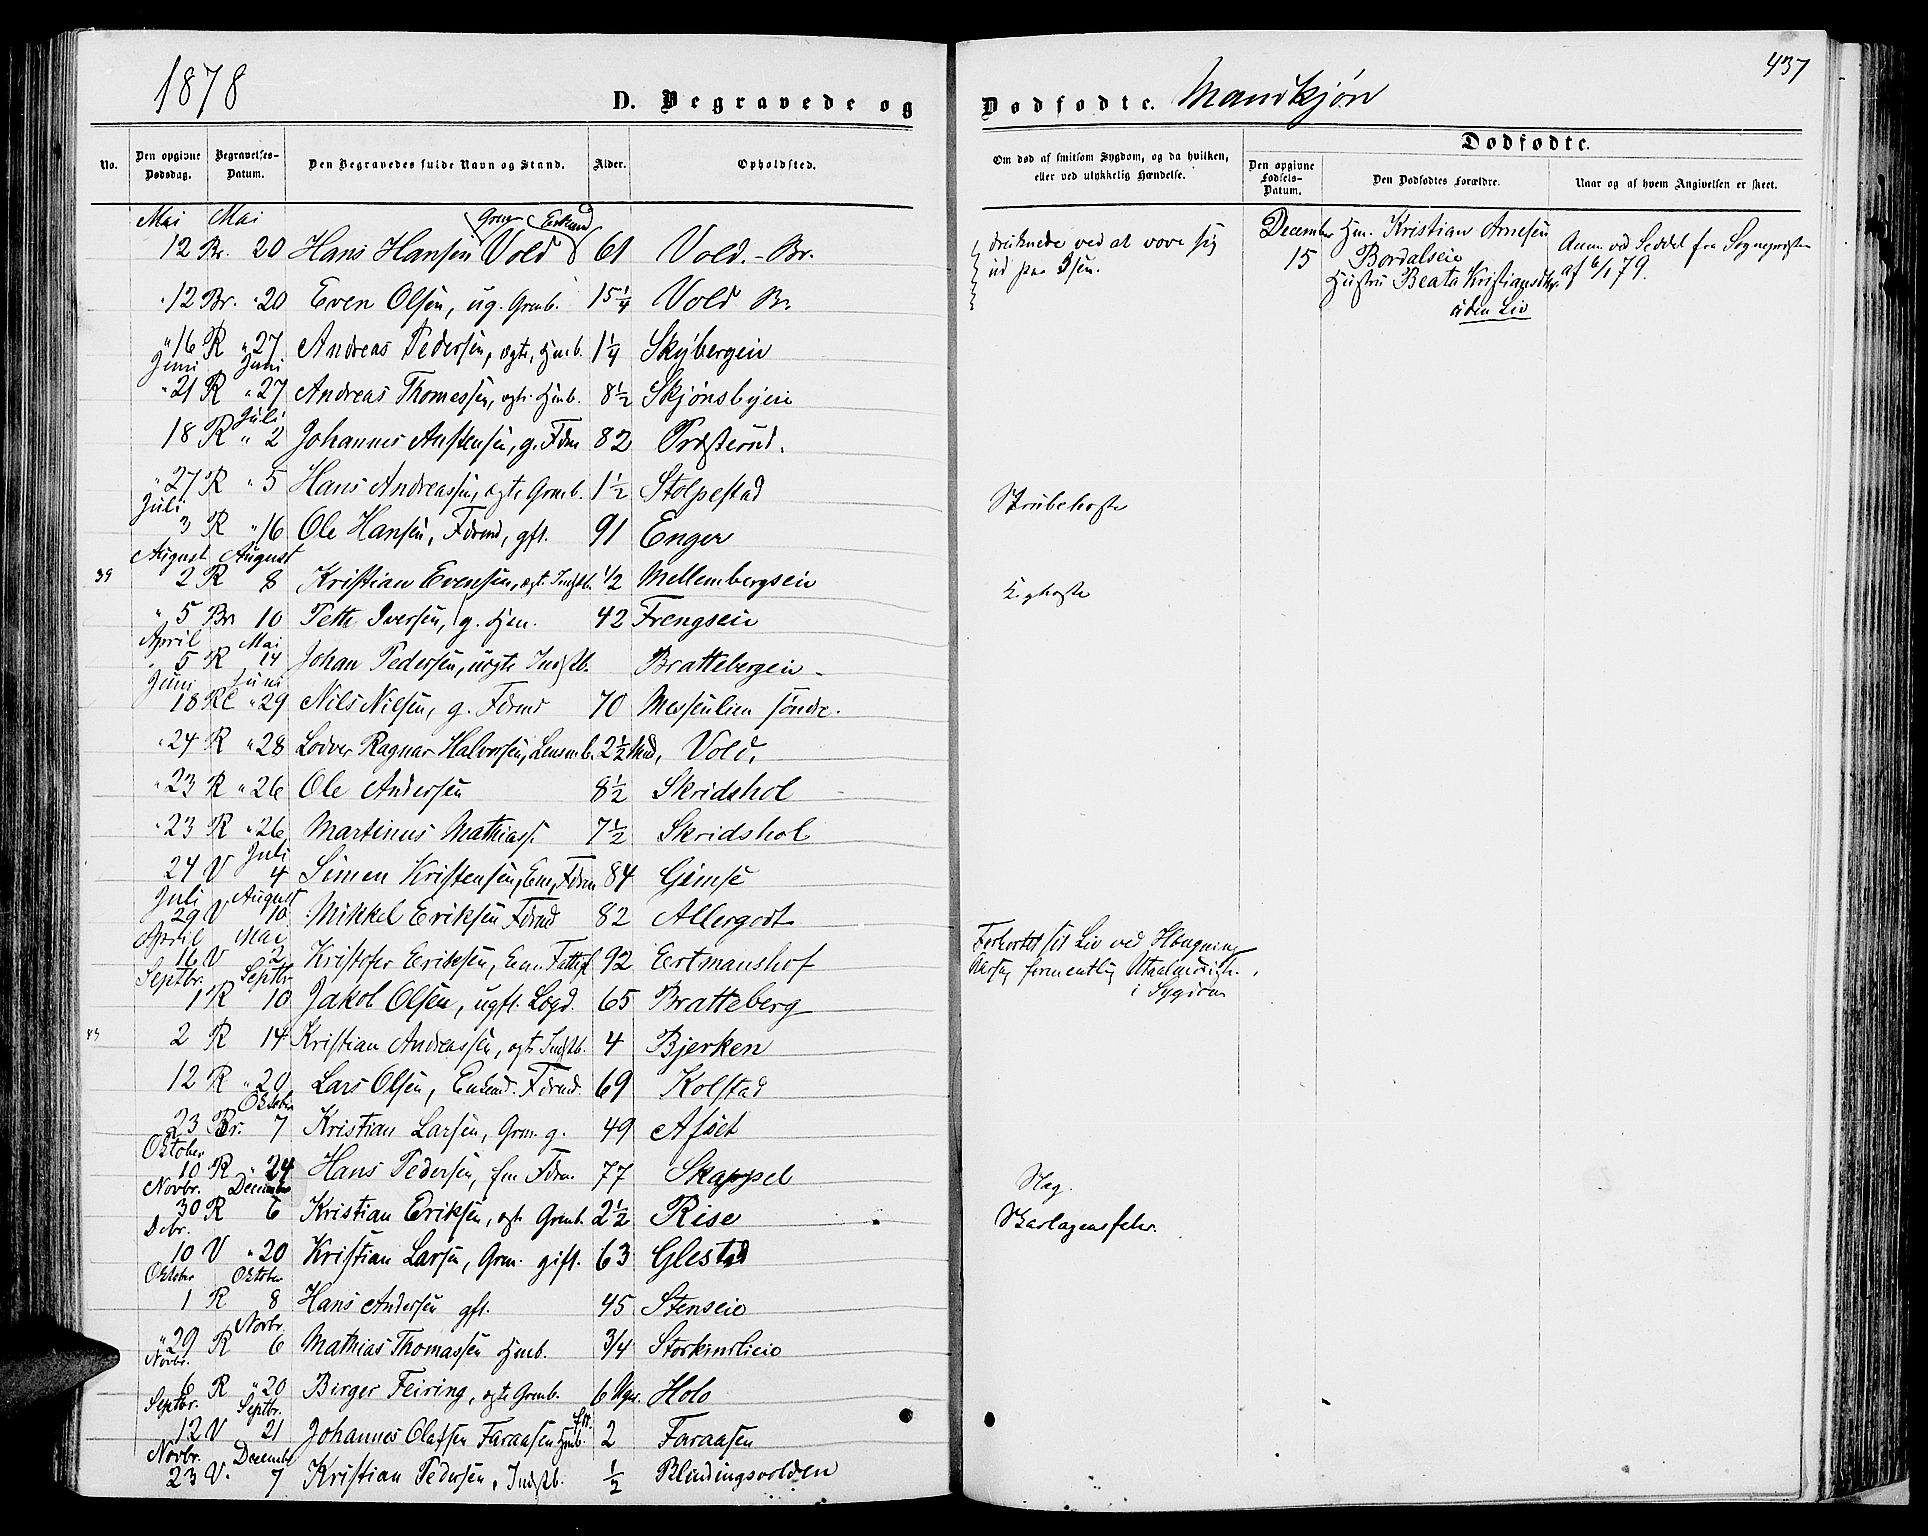 1878
D. Begravede og
Dødfødte. Mandkjøn
437
No.
Den opgivne Dødsdag.
Begravelses-Datum.
Den Begravedes fulde Navn og Stand.
Alder.
Opholdsted.
Om død af smitsom Sygdom, og da hvilken, eller ved ulykkelig Hændelse.
Dødfødte.
Den opgivne Fødsels-Datum.
Den Dødfødtes Forældre.
Naar og af hvem Angivelsen er skeet.
Mai Mai
12 Br. 20 Hans Hansen Vold 61 Vold. - Br.
druknede ved at vove sig
ud paa Isen.
December Hm. Kristian Arnesen
15 Bordalseie
Hustru Beata Kristiansdtr.
uden Liv
Anm. ved Seddel fra Sognepræsten
af 6/1 79.
" 12 Br. " 20 Even Olsen, ug. Grmb. 15 1/4 Vold Br.
" 16 R " 27 Andreas Pedersen, ægte, Hmb. 1 1/4 Skybergeie
Juni Juni
" 21 R " 27 Andreas Thomessen, ægte Hmb. 8 1/2 Skjønsbyeie
Juli
18 R " 2 Johannes Anstensen, g. Fdrm 82 Præsterud.
" 27 R " 5 Hans Andreassen, ægte Grmb. 1 1/2 Stolpestad
Strubehoste
Juli
3 R " 16 Ole Hansen, Fdrmd, gft. 91 Enger
August August
39 2 R 8 Kristian Evensen, ægt. Indstb. 1/2 Mellembergseie
Kighoste
" 5 Br 10 Petter Iversen, g. Hm. 42 Frengseie
April Mai
" 5 R 14 Johan Pedersen, uægte Indstb. Brattebergeie
Juni Juni
18 R " 29 Nils Nielsen, g. Fdrmd 70 Messenlien søndre.
" 24 R " 28 Ragnar Halvorsen, Lensmb. 2 1/2 Mnd. Vold.
" 23 R " 26 Ole Andersen 8 1/2 Skridshol
" 23 R " 26 Martinus Mathiass. 7 1/2 Skridshol
Juli
24 V 4 Simen Kristensen, Em, Fdrm 84 Gimse
Juli August
29 V 10 Mikkel Eriksen Fdrmd 82 Allergodt
April Mai
16 V 2 Kristofer Eriksen, Em. Fattigl. 92 Eertmanshof
Forkortet sit Liv ved Hængning
Aarsag formentlig Utaalmodigh.
i Sygdom
Septbr. Septbr.
1 R 10 Jakob Olsen, ugft. Logd. 65 Bratteberg
2 R 14 Kristian Andreassen, ægte Indstb. 4 Bjerken
12 R " 20 Lars Olsen, Enkmd. Fdrmd. 69 Kolstad
Oktober
23 Br. 7 Kristian Larsen, Grm. g. 49 Afset
Oktober
10 R " 24 Hans Pedersen, Fdrm. 77 Skappel
Slag.
Novbr. December
30 R 6 Kristian Eriksen, ægte Grmb. 2 1/2 Rise
Skarlagensfeber.
Debr.
10 V " 20 Kristian Larsen, Grm. gift. 63 Glestad
Oktober Oktober
1 R 8 Hans Andersen gft. 45 Stenseie
Novbr.
" 29 R 6 Mathias Thomassen Hmb. 3/4
Novbr.
6 R " 20 Birger Feiring, ægte Grmb. 6 Uger. Holo
Septbr. Septbr.
12 V 21 Johannes Olafsen Faraasen Hmb. 2 Faraasen
Novbr. December
23 V. 7 Kristian Pedersen, Indstb. 1/2 Blindingsvolden